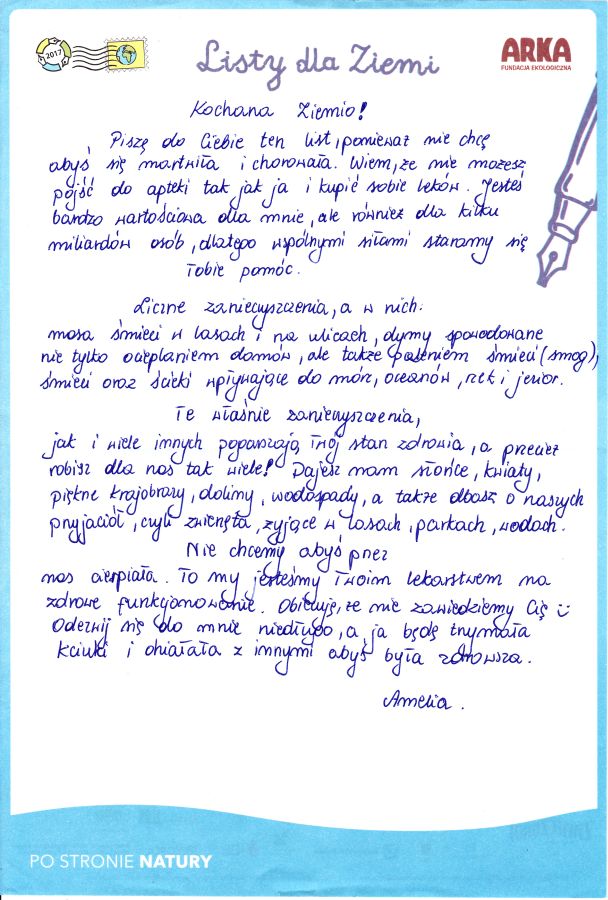 2017
Listy dla Ziemi
ARKA
FUNDACJA EKOLOGICZNA
Kochana Ziemio!
Piszę do Ciebie ten list, ponieważ nie chcę
abyś się martwiła i chorowała. Wiem, że nie możesz
pójść do apteki tak jak ja i kupić sobie leków. Jesteś
bardzo wartościowa dla mnie, ale również dla kilku
miliardów osób, dlatego wspólnymi siłami staramy się
Tobie pomóc.
Liczne zanieczyszczenia, a w nich:
masa śmieci w lasach i na ulicach, dymy spowodowane
nie tylko ocieplaniem domów, ale także paleniem śmieci (smog),
śmieci oraz ścieki wpływające do mórz, oceanów, rzek i jezior.
Te właśnie zanieczyszczenia,
jak i wiele innych pogarszają Twój stan zdrowia, a przecież
robisz dla nas tak wiele! Dajesz nam słońce, kwiaty,
piękne krajobrazy, doliny, wodospady, a także dbasz o naszych
przyjaciół, czyli zwierzęta, żyjące w lasach, parkach, wodach.
Nie chcemy abyś przez
nas cierpiała. To my jesteśmy Twoim lekarstwem na
zdrowe funkcjonowanie. Obiecuję, że nie zawiedziemy Cię
Odezwij się do mnie niedługo, a ja będę trzymała
kciuki i działała z innymi abyś była zdrowsza.
Amelia.
PO STRONIE NATURY